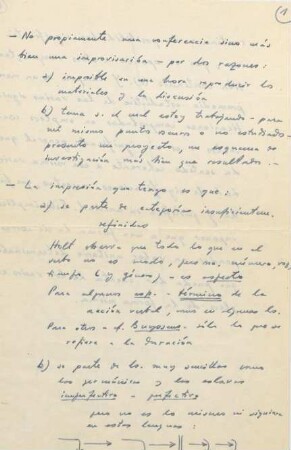 1
- No propiamente una conferencia sino más
bien una improvisación - por dos razones:
a) imposible en una hora reproducir los
materiales y la discusión
b) tema s. el cual estoy trabajando - para
mí mismo puntos a no estudiados -
presento un proyecto, un esquema de
investigación más bien que resultados. -
- La impresión que tengo es que:
a) se parte de categorías insuficientem.
definidas
Holt observa que todo lo que en el
verbo no es modo, persona, número, voz,
tiempo (y género) - es aspecto
Para algunos asp. - término de la
acción verbal,
Para otros - p. Burgsmo. - sólo lo que se
refiere a la duración
b) se parte de muy sencillos como
los germánicos y los eslavos
imperfectivo - perfectivo
pero no es lo mismo ni siquiera
en estas lenguas: